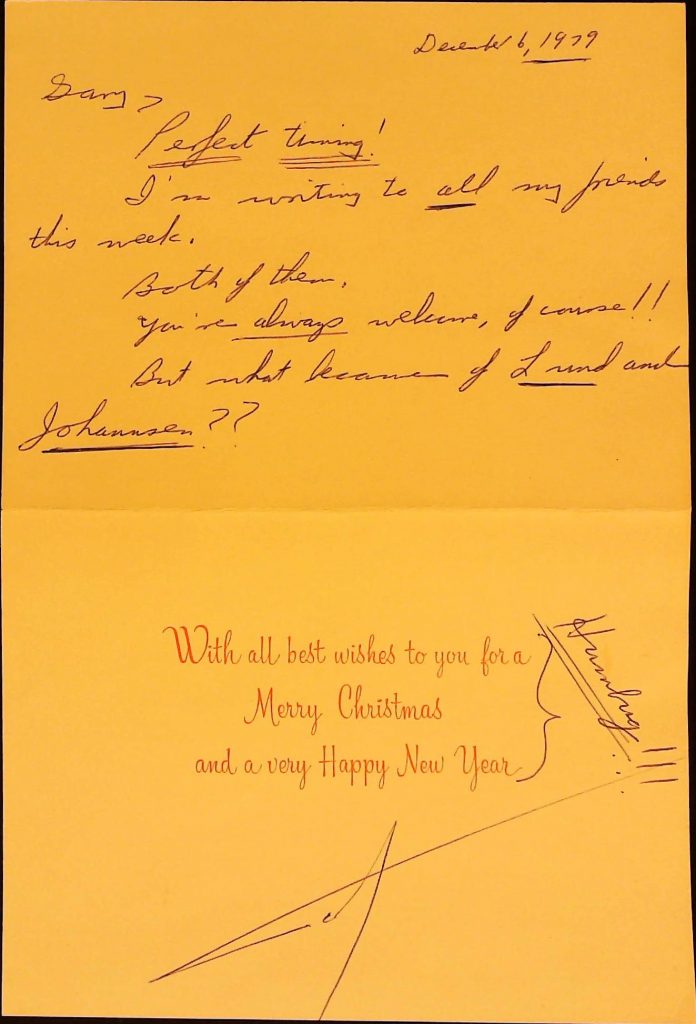 December 6, 1979
Gary,
Perfect timing!
I'm writing to all my friends
this week.
Both of them.
You're always welcome, of course!!
But what became of Lund and
Johannsen??
With all best wishes to you for a
Merry Christmas
and a very Happy New Year
Humbug!!!